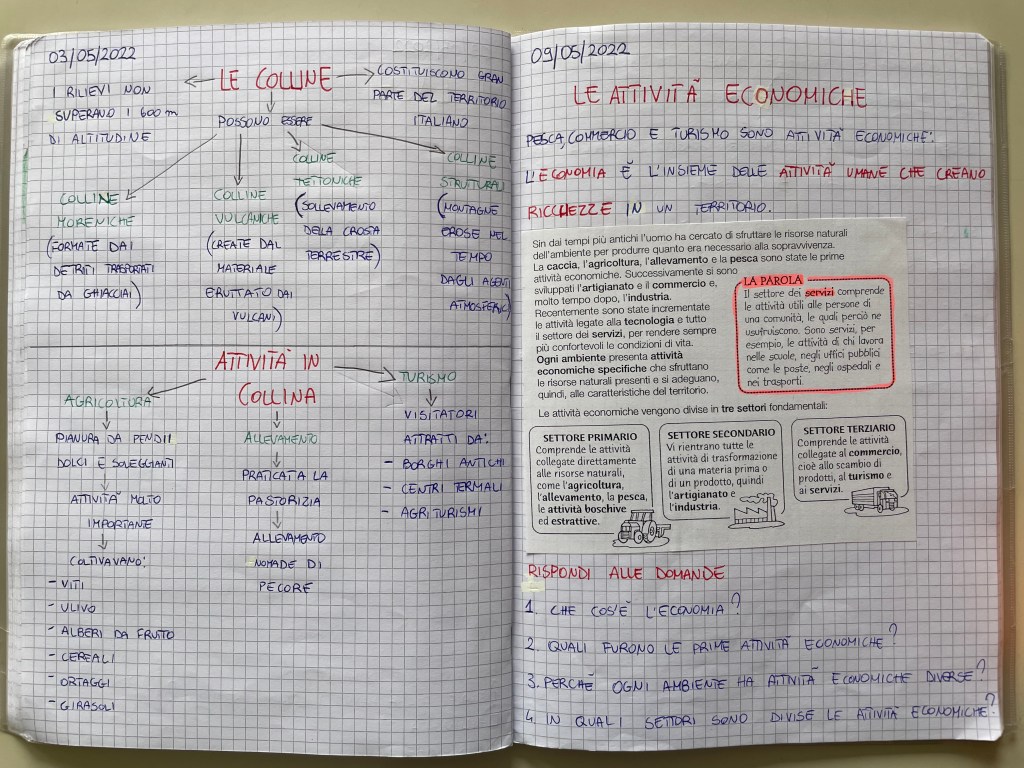 03/05/2022
LE COLLINE
I RILIEVI NON
SUPERANO I 600 m
DI ALTITUDINE
COSTITUISCONO GRAN
PARTE DEL TERRITORIO
ITALIANO
POSSONO ESSERE
COLLINE
MORENICHE
(FORMATE DAI
DETRITI TRASPORTATI
DA GHIACCIAI)
COLLINE
VULCANICHE
(CREATE DAL
MATERIALE
ERUTTATO DAI
VULCANI)
COLLINE
TETTONICHE
(SOLLEVAMENTO
DELLA CROSTA
TERRESTRE)
COLLINE
STRUTTURALI
(MONTAGNE
EROSE NEL
TEMPO
DAGLI AGENTI
ATMOSFERICI)
ATTIVITÀ IN
COLLINA
AGRICOLTURA
PIANURA DA PENDII
DOLCI E SOLEGGIANTI
ATTIVITÀ MOLTO
IMPORTANTE
COLTIVAVANO:
- VITI
- ULIVO
- ALBERI DA FRUTTO
- CEREALI
- ORTAGGI
- GIRASOLI
ALLEVAMENTO
PRATICATA LA
PASTORIZIA
ALLEVAMENTO
NOMADE DI
PECORE
TURISMO
VISITATORI
ATTRATTI DA:
- BORGHI ANTICHI
- CENTRI TERMALI
- AGRITURISMI
09/05/2022
LE ATTIVITÀ ECONOMICHE
PESCA, COMMERCIO E TURISMO SONO ATTIVITÀ ECONOMICHE:
L'ECONOMIA È L'INSIEME DELLE ATTIVITÀ UMANE CHE CREANO
RICCHEZZE IN UN TERRITORIO.
Sin dai tempi più antichi l'uomo ha cercato di sfruttare le risorse naturali
dell'ambiente per produrre quanto era necessario alla sopravvivenza.
La caccia, l'agricoltura, l'allevamento e la pesca sono state le prime
attività economiche. Successivamente si sono
sviluppati l'artigianato e il commercio e,
molto tempo dopo, l'industria.
Recentemente sono state incrementate
le attività legate alla tecnologia e tutto
il settore dei servizi, per rendere sempre
più confortevoli le condizioni di vita.
Ogni ambiente presenta attività
economiche specifiche che sfruttano
le risorse naturali presenti e si adeguano,
quindi, alle caratteristiche del territorio.
LA PAROLA
Il settore dei servizi comprende
le attività utili alle persone di
una comunità, le quali perciò ne
usufruiscono. Sono servizi, per
esempio, le attività di chi lavora
nelle scuole, negli uffici pubblici
come le poste, negli ospedali e
nei trasporti.
Le attività economiche vengono divise in tre settori fondamentali:
SETTORE PRIMARIO
Comprende le attività
collegate direttamente
alle risorse naturali,
come l'agricoltura,
l'allevamento, la pesca,
le attività boschive
ed estrattive.
SETTORE SECONDARIO
Vi rientrano tutte le
attività di trasformazione
di una materia prima o
di un prodotto, quindi
l'artigianato e
l'industria.
SETTORE TERZIARIO
Comprende le attività
collegate al commercio,
cioè allo scambio di
prodotti, al turismo e
ai servizi.
RISPONDI ALLE DOMANDE
1. CHE COS'È L'ECONOMIA?
2. QUALI FURONO LE PRIME ATTIVITÀ ECONOMICHE?
3. PERCHÈ OGNI AMBIENTE HA ATTIVITÀ ECONOMICHE DIVERSE?
4. IN QUALI SETTORI SONO DIVISE LE ATTIVITÀ ECONOMICHE?